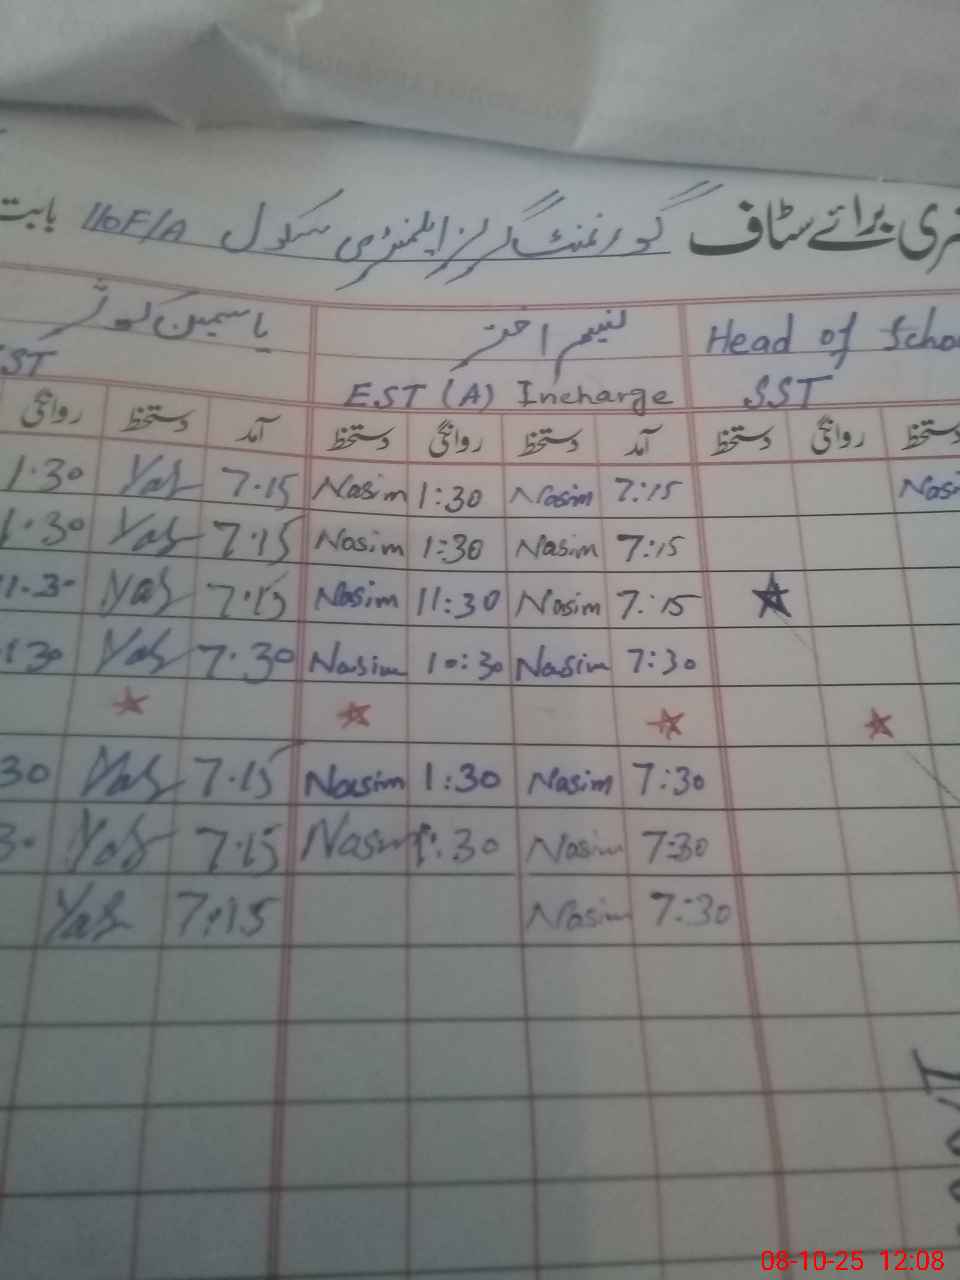 برائے سٹاف گورنمنٹ گرلز ایلمنٹری سکول 110F/A بابت
Head of نسیم اختر یاسمین کوثر
SST EST (A) Incharge
دستخط روانگی دستخط آمد روانگی دستخط آمد دستخط روانگی
7:15 Nasim 1:30 Nasim 7.15 Yas 1.30
7:15 Nasim 1:30 Nasim 7.15 Yas 1.30
7:15 Nasim 11:30 Nasim 7.15 Yas 11.30
7:30 Nasim 10:30 Nasim 7.30 Yas
7:30 Nasim 1:30 Nasim 7.15 Yas 30
7:30 Nasim 1:30 Nasim 7.15 Yas
7:30 Nasim 7:15 Yas
08-10-25 12:08